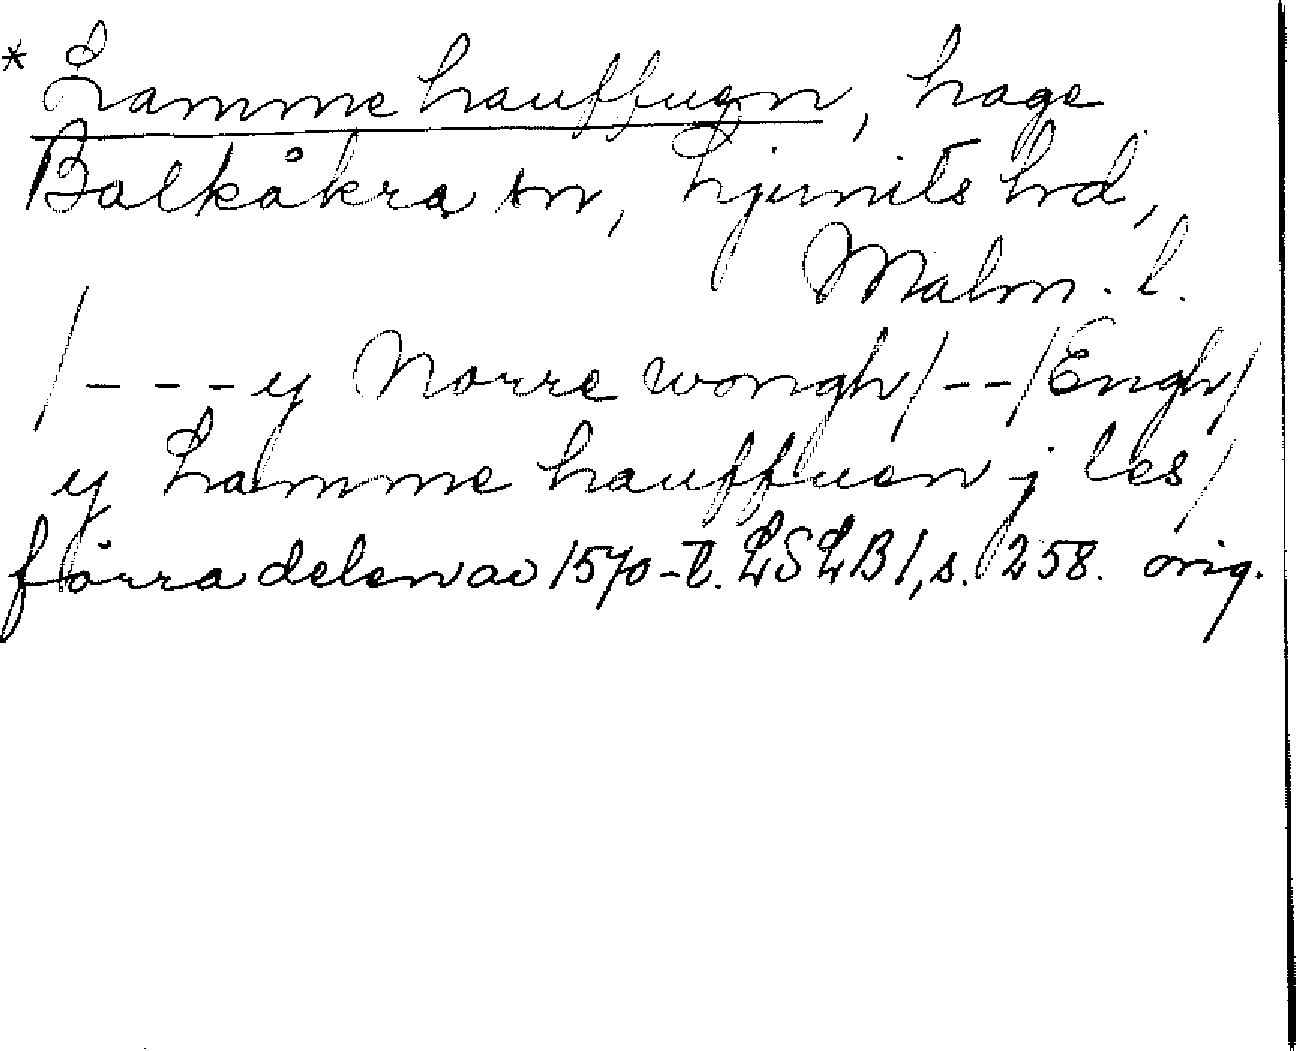 * Lamme hauffuen, hage
Balkåkra sn, Ljunits hd,
Malm. l.
/ - - - y Norre wongh / - - / Engh /
y Lamme hauffuen j les /
förra delen av 1570-t. LSLB 1, s. 258. orig.